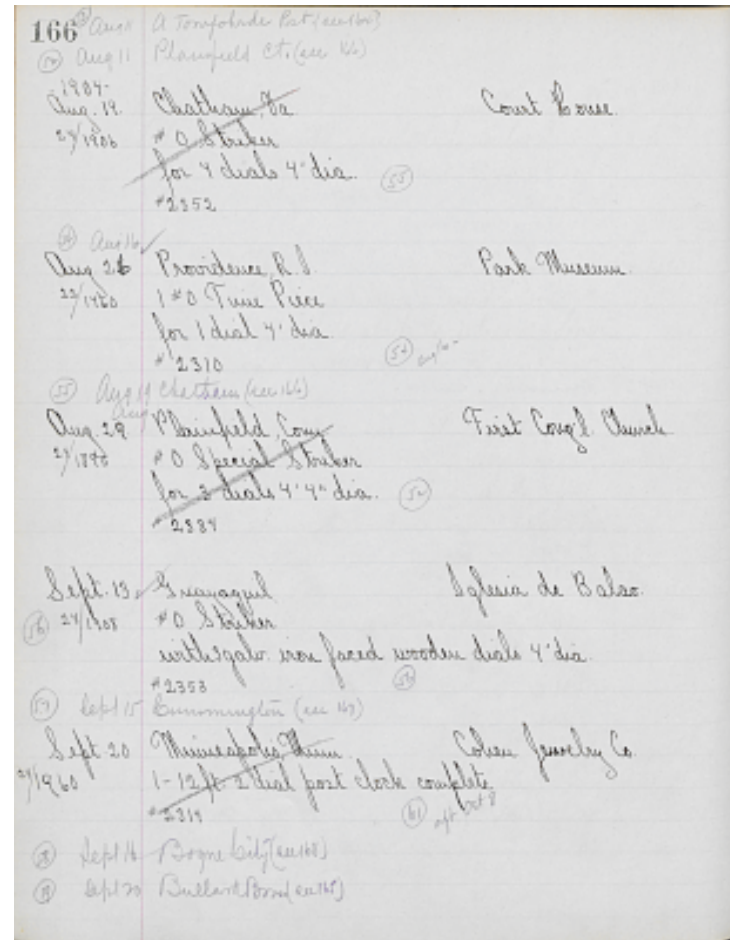 166 Aug 8 A Post (see 166)
Aug 11 Plainfield Ct. (see 166)
1904-
Aug. 19. Chatham, Va. Court House.
24/1906 # 0 Striker
for 4 dials 4' dia. 55
#2352
Aug 16
Aug 26 Providence, R.I. Park Museum.
1 #0 Time Piece
for 1 dial 4' dia.
#2310 54
55 Aug 19 Chatham (see 166)
Aug
Aug. 29 Plainfield, Conn. First Congl. Church
# 0 Special Striker
for 3 dials 4'4" dia. 52
#2384
Sept. 13 Guayaquil Iglesia de Balao.
56 24/1908 #0 Striker
with 3 galv. iron faced wooden dials 4' dia.
#2353 56
57 Sept 15 Cummington (see 167)
Sept 20 Minneapolis, Minn. Cohen Jewelry Co.
1-12 ft. 2 dial post clock complete
61 Oct 8
58 Sept 16 Boyne City (see 168)
59 Sept 20 Bullard